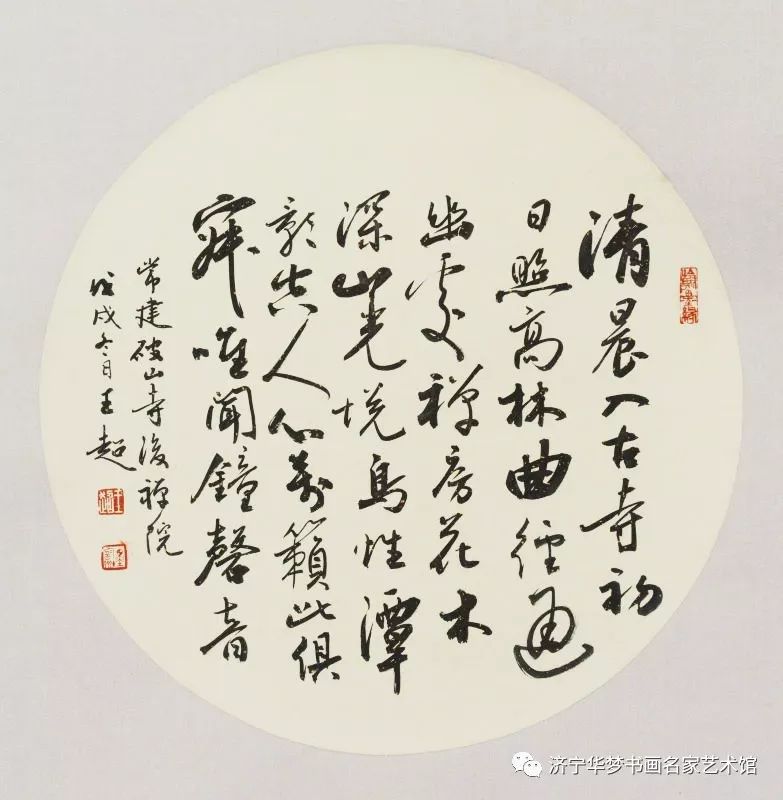 清晨入古寺初
日照高林曲徑通
幽處禅房花木
深山光悦鳥性潭
影空人心萬籟此俱
寂唯聞鐘磬音
常建破山寺後禅院
戊戌冬日王超
济宁华梦书画名家艺术馆